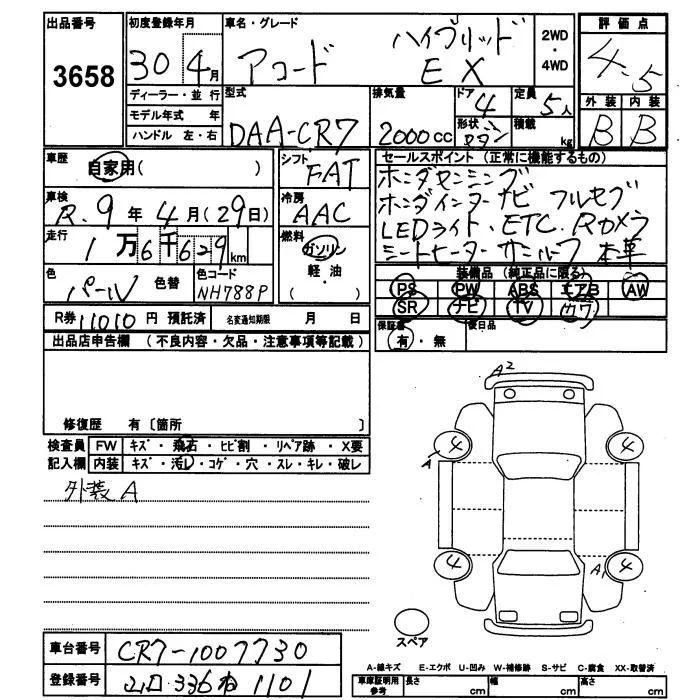 出品番号
3658
初度登録年月
30 4月
車名・グレード
アコード ハイブリッド EX
2WD
・
4WD
評価点
4.5
外装 内装
B B
ディーラー・並行
モデル年式 年
ハンドル 左・右
型式
DAA-CR7
排気量
2000cc
ドア
4
形状
セダン
定員
5人
積載
kg
車歴
自家用( )
シフト
FAT
セールスポイント (正常に機能するもの)
ホンダセンシング
ホンダインターナビ フルセグ
LEDライト・ETC・Rカメラ
シートヒーター サンルーフ 本革
車検
R.9年4月(29日)
冷房
AAC
走行
1万6千629km
燃料
ガソリン
・
軽・油
( )
色
パール
色替
色コード
NH788P
装備品 (純正品に限る)
PS PW ABS エアB AW
SR ナビ TV カワ
R券 11010円 預託済
名変通知期限 月 日
保証書
有・無
後日品
出品店申告欄 (不良内容・欠品・注意事項等記載)
修復歴 有〔箇所 〕
検査員
記入欄
FW キズ・飛石・ヒビ割・リペア跡・X要
内装 キズ・汚レ・コゲ・穴・スレ・キレ・破レ
外装A
A2
4 4
A
4 4
A1
スペア
車台番号
CR7-1007730
登録番号
山口 336 ね 1101
A-線キズ E-エクボ U-凹み W-補修跡 S-サビ C-腐食 XX-取替済
車庫証明用
参考
長さ cm 幅 cm 高さ cm